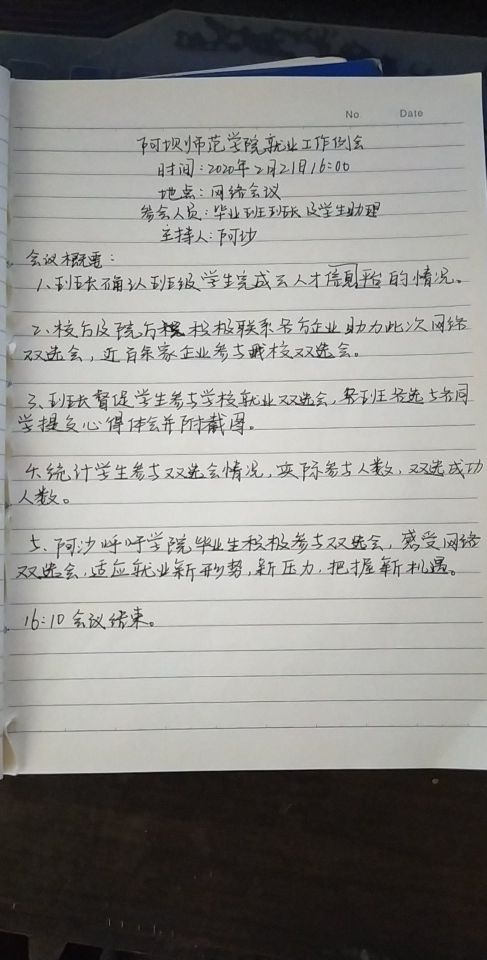 No Date
阿坝师范学院就业工作例会
时间:2020年2月21日16:00
地点:网络会议
参会人员:毕业班班长及学生助理
主持人:阿沙
会议概要:
1、班长确认班级学生完成云人才信息平台的情况。
2、校方及院方积极联系各方企业助力此次网络
双选会,近百余家企业参与我校双选会。
3、班长督促学生参与学校就业双选会,各班书选七名同
学提交心得体会并附截图。
4、统计学生参与双选会情况,实际参与人数,双选成功
人数。
5、阿沙呼吁学院毕业生积极参与双选会,感受网络
双选会,适应就业新形势,新压力,把握新机遇。
16:10会议结束。